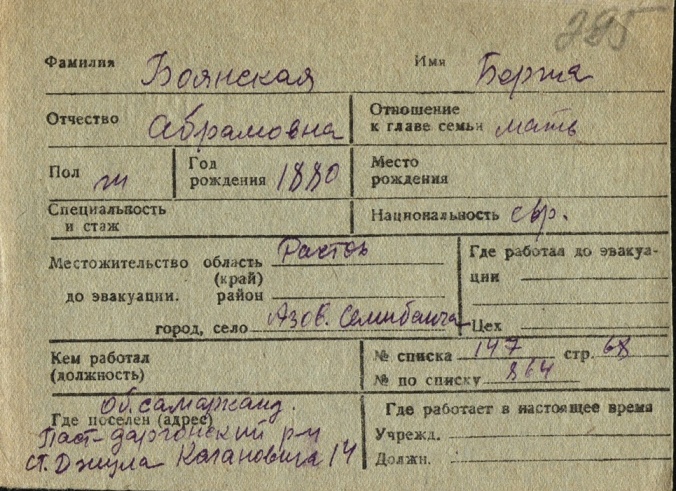 295
Фамилия Боянская Имя Берта
Отчество Абрамовна Отношение к главе семьи мать
Пол ж Год рождения 1880 Место рождения
Специальность и стаж Национальность евр.
Местожительство до эвакуации. область (край) Ростов
район
город, село Азов.
Где работал до эвакуации
Цех
Кем работал (должность)
№ списка 147 стр. 68
№ по списку 864
Где поселен (адрес) об. самарканд.
Паст-даргонский р-н
ст. Джума Кагановича 14
Где работает в настоящее время
Учрежд.
Должн.